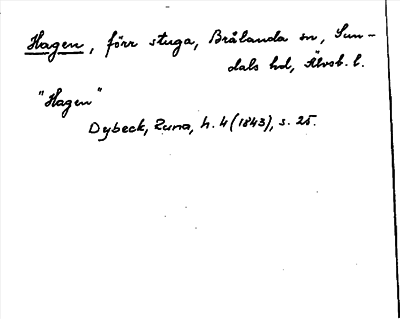 Hagen, förr stuga, Brålanda sn, Sun-
dals hd, Älvsb. l.
"Hagen"
Dybeck, Runa, h. 4 (1843), s. 25.